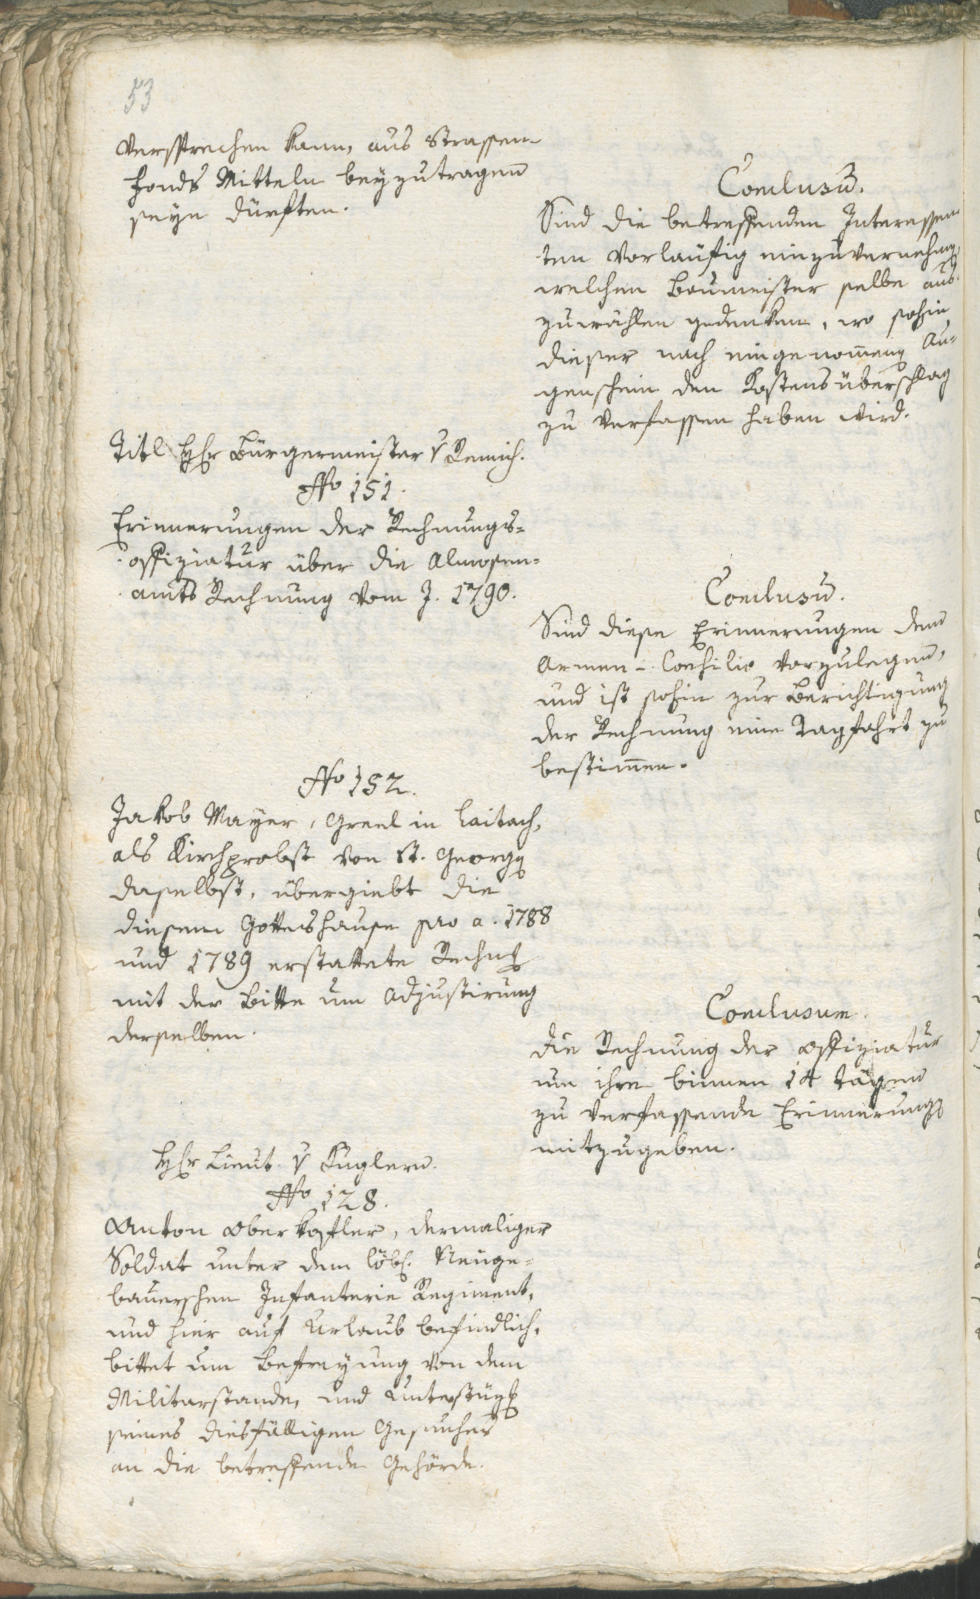 53
versprechen kann, aus Strassen
fonds Mitteln beyzutragen
seyn dürften.
Conclusū.
Sind die betreffenden Interessen
ten vorläufig einzuvernehmen,
welchen Baumeister selbe aus-
zuwählen gedenken, wo sohin
dieser nach eingenom̅eng Au-
genschein den Kostensüberschlag
zu verfassen haben wird.
Titl. Hr Bürgermeister v
No 151.
Erinnerungen der Rechnungs-
offiziatur über die Almosen-
amts Rechnung vom J. 1790.
Conclusū.
Sind diese Erinnerungen dem
Armen-Consilio vorzulegen,
und ist sohin zur Berichtigung
der Rechnung eine Tagfahrt zu
bestim̅en.
No 152.
Jakob Mayer, Greel in Laitach,
als Kirchprobst von St. Georg
daselbst, übergiebt die
diesem Gotteshause pro a. 1788
und 1789 erstattete Rechng
mit der Bitte um Adjustirung
derselben.
Conclusum.
Die Rechnung der Offiziatur
um ihre binnen 14 tägen
zu verfassende Erinnerungs
mitzugeben.
Hr Lieut. v Kuglern.
No 128.
Anton Oberkofler, dermaliger
Soldat unter dem löbl. Neuge-
bauerschen Infanterie Regiment,
und hier auf Urlaub befindlich,
bittet um Befreyung von dem
Militarstande, und Unterstüzg
seines diesfälligen Gesuches
an die betreffende Gehörde.